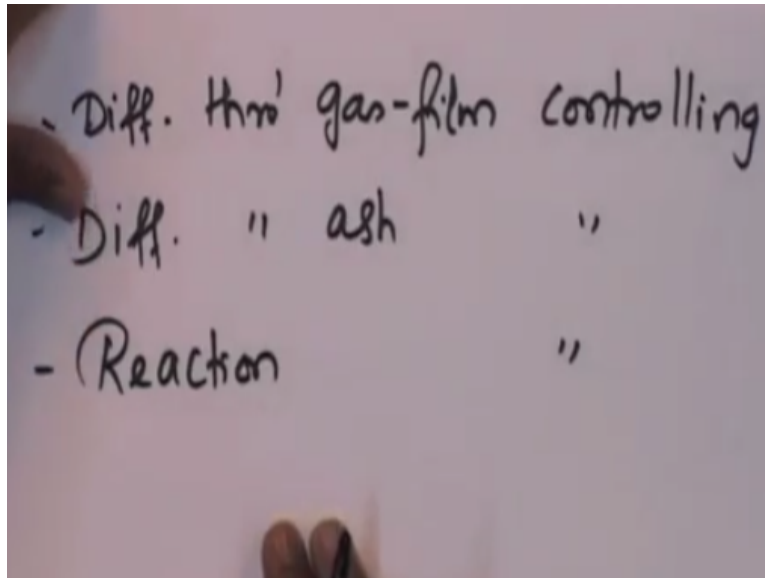 - Diff. thro' gas-film controlling
- Diff. " ash "
- Reaction "